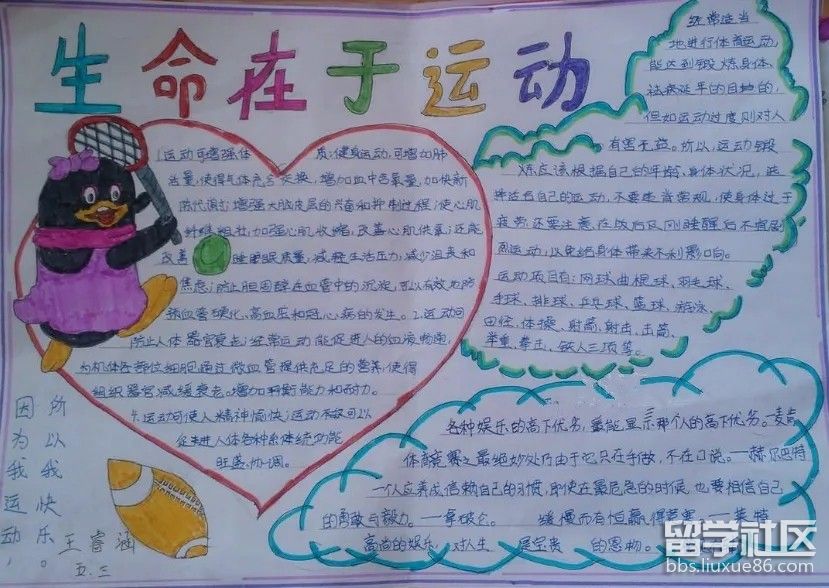 生命在于运动
1.运动可增强体质:健身运动,可增加肺
活量,使得气体充分交换,增加血中含氧量,加快新
陈代谢;增强大脑皮层的兴奋和抑制过程;使心肌
纤维粗壮,加强心肌收缩,改善心肌供氧;还能
改善睡眠质量,减轻生活压力,减少沮丧和
焦虑;防止胆固醇在血管中的沉淀,可以有效地防
预血管硬化、高血压和冠心病的发生。2.运动可
防止人体器官衰老:经常运动能促进人的血液畅通,
为机体各部位细胞通过微血管提供充足的营养,使得
组织器官减缓衰老。增加耐力和
4.运动可使人精神愉快:运动不仅可以
促进人体各种系体统功能
旺盛、协调。
经常适当
地进行体育运动,
能达到锻炼身体、
祛病延年的目地的,
但如运动过度则对人
有害无益。所以,运动锻
炼应该根据自己的年龄、身体状况,选
择适合自己的运动,不要违背常规,使身体过于
疲劳;还要注意在饭后及刚睡醒后不宜剧
烈运动,以免给身体带来不利影响。
运动项目有:网球、曲棍球、羽毛球、
手球、排球、乒乓球、篮球、游泳、
田径、体操、射箭、射击、击剑、
举重、拳击、铁人三项等。
各种娱乐的高下优劣,最能显示那个人的高下优劣。—麦肯
体育竞赛之最绝妙处乃由于它只在手做,不在口说。—赫尔巴特
一个人应养成信赖自己的习惯,即使在最危急的时候,也要相信自己
的勇敢与毅力。—拿破仑。 缓慢而有恒赢得竞赛。—莱特
高尚的娱乐,对人生是宝贵的恩物。
因为我运动,
所以我快乐。
王睿涵
五.三
留学社区
bbs.liuxue86.com